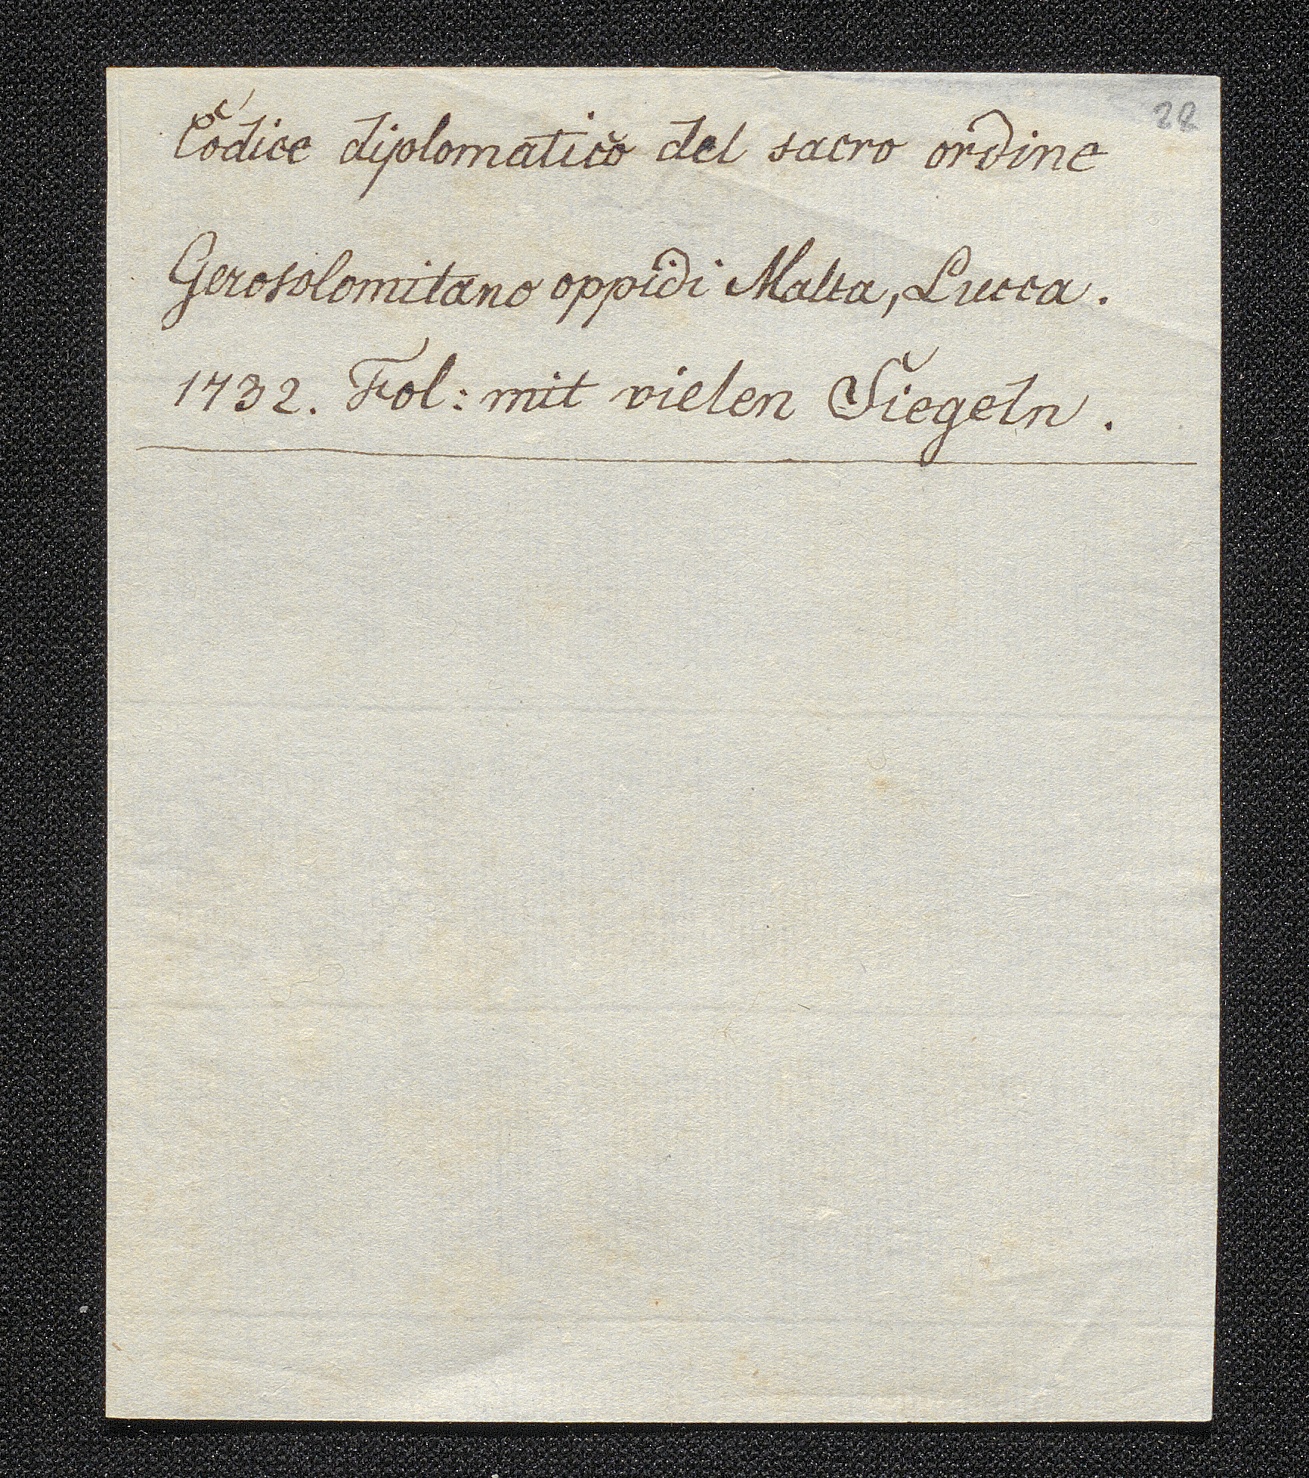 28
Codice diplomatico del sacro ordine
Gerosolomitano oppidi Malta, Lucca.
1732. Fol: mit vielen Siegeln.